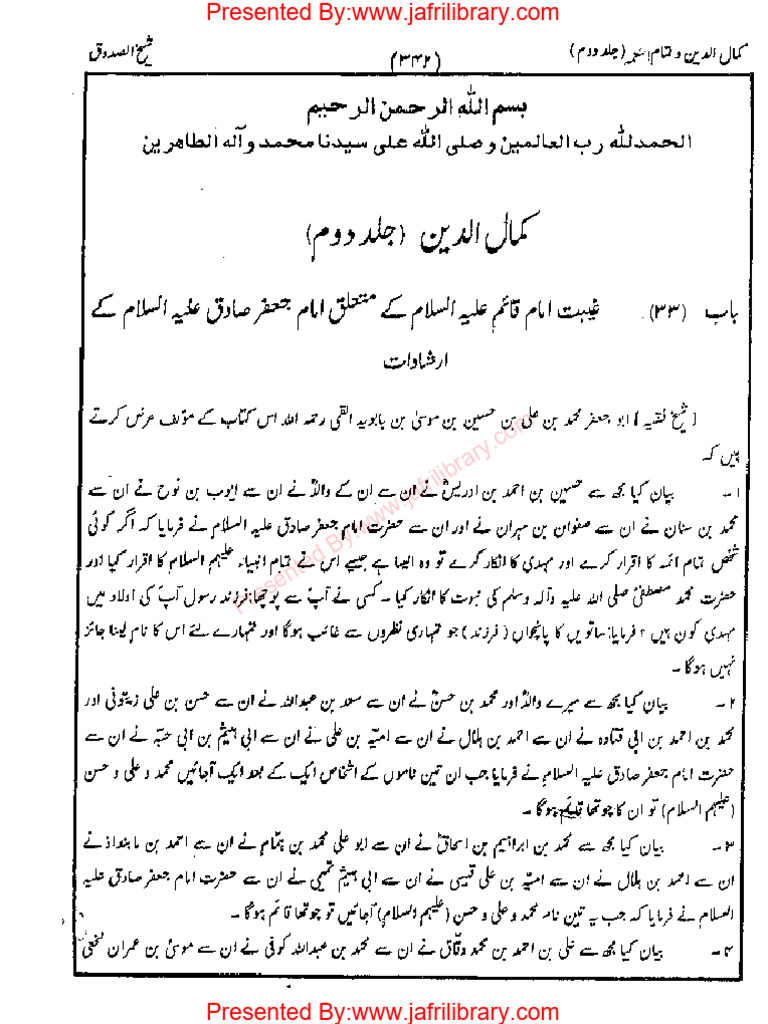 Presented By:www.jafrilibrary.com
کمال الدین و تمام النعمہ (جلد دوم)
(۳۴۲)
شیخ الصدوق
بسم الله الرحمن الرحيم
الحمدلله رب العالمين وصلى الله على سيدنا محمد وآله الطاهرين
کمال الدین (جلد دوم)
باب (۳۳) غیبت امام قائم علیہ السلام کے متعلق امام جعفر صادق علیہ السلام کے
ارشادات
[شیخ فقیہ] ابو جعفر محمد بن علی بن حسین بن موسیٰ بن بابویہ القمی رحمہ اللہ اس کتاب کے مؤلف عرض کرتے
ہیں کہ
۱۔ بیان کیا مجھ سے حسین بن احمد بن ادریسؒ نے ان سے ان کے والدؒ نے ان سے ایوب بن نوح نے ان سے
محمد بن سنان نے ان سے صفوان بن مہران نے اور ان سے حضرت امام جعفر صادق علیہ السلام نے فرمایا کہ اگر کوئی
شخص تمام ائمہ کا اقرار کرے اور مہدی کا انکار کرے تو وہ ایسا ہے جیسے اس نے تمام انبیاء علیہم السلام کا اقرار کیا اور
حضرت محمد مصطفیٰ صلی اللہ علیہ وآلہ وسلم کی نبوت کا انکار کیا ۔ کسی نے آپؑ سے پوچھا: فرزند رسول آپؑ کی اولاد میں
مہدی کون ہیں ؟ فرمایا: ساتویں کا پانچواں (فرزند) جو تمہاری نظروں سے غائب ہوگا اور تمہارے لئے اس کا نام لینا جائز
نہیں ہوگا ۔
۲۔ بیان کیا مجھ سے میرے والدؒ اور محمد بن حسنؒ نے ان سے سعد بن عبداللہ نے ان سے حسن بن علی زیتونی اور
محمد بن احمد بن ابی قتادہ نے ان سے احمد بن ہلال نے ان سے امیہ بن علی نے ان سے ابی ہیثم بن ابی حبہ نے ان سے
حضرت امام جعفر صادق علیہ السلام نے فرمایا جب ان تین ناموں کے اشخاص ایک کے بعد ایک آجائیں محمد و علی و حسن
(علیہم السلام) تو ان کا چوتھا قائم ہوگا ۔
۳۔ بیان کیا مجھ سے محمد بن ابراہیم بن اسحاقؒ نے ان سے ابو علی محمد بن ہمام نے ان سے احمد بن مابنداذ نے
ان سے احمد بن ہلال نے ان سے امیہ بن علی قیسی نے ان سے ابی ہیثم تمیمی نے ان سے حضرت امام جعفر صادق علیہ
السلام نے فرمایا کہ جب یہ تین نام محمد و علی و حسن (علیہم السلام) آجائیں تو چوتھا قائم ہوگا ۔
۴۔ بیان کیا مجھ سے علی بن احمد بن محمد دقاق نے ان سے محمد بن عبداللہ کوفی نے ان سے موسیٰ بن عمران نخعی
Presented By:www.jafrilibrary.com
Presented By:www.jafrilibrary.com